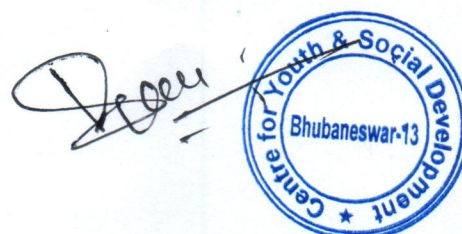 Centre for Youth & Social Development
Bhubaneswar-13